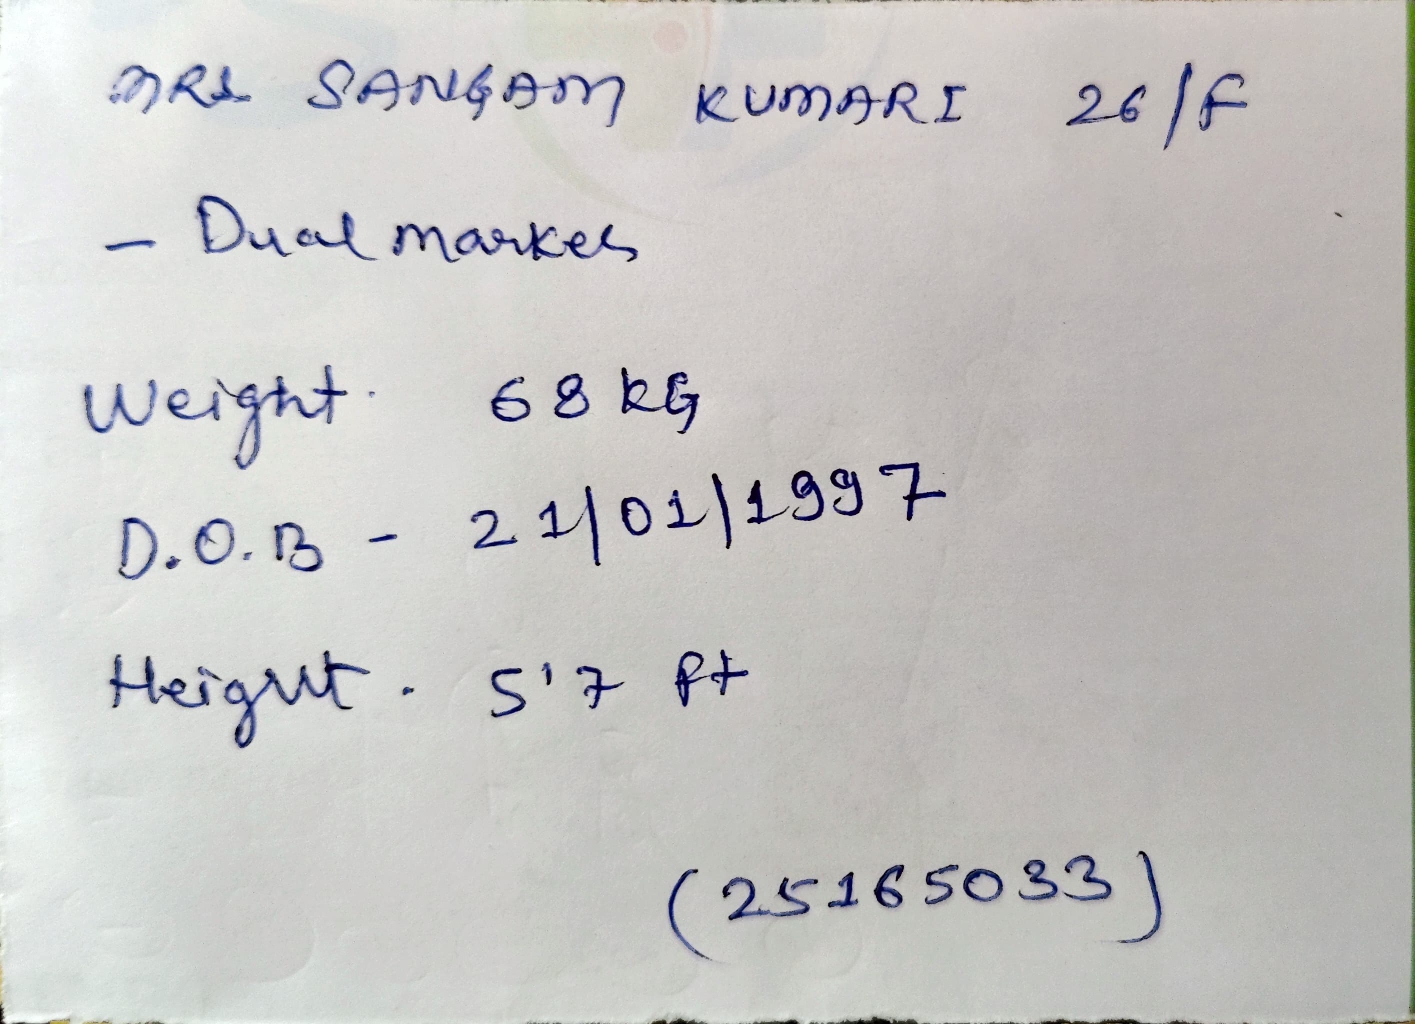 MRS SANGAM KUMARI 26/F
- Dual marker
Weight. 68 KG
D.O.B - 21/01/1997
Height. 5'7 ft
(25165033)